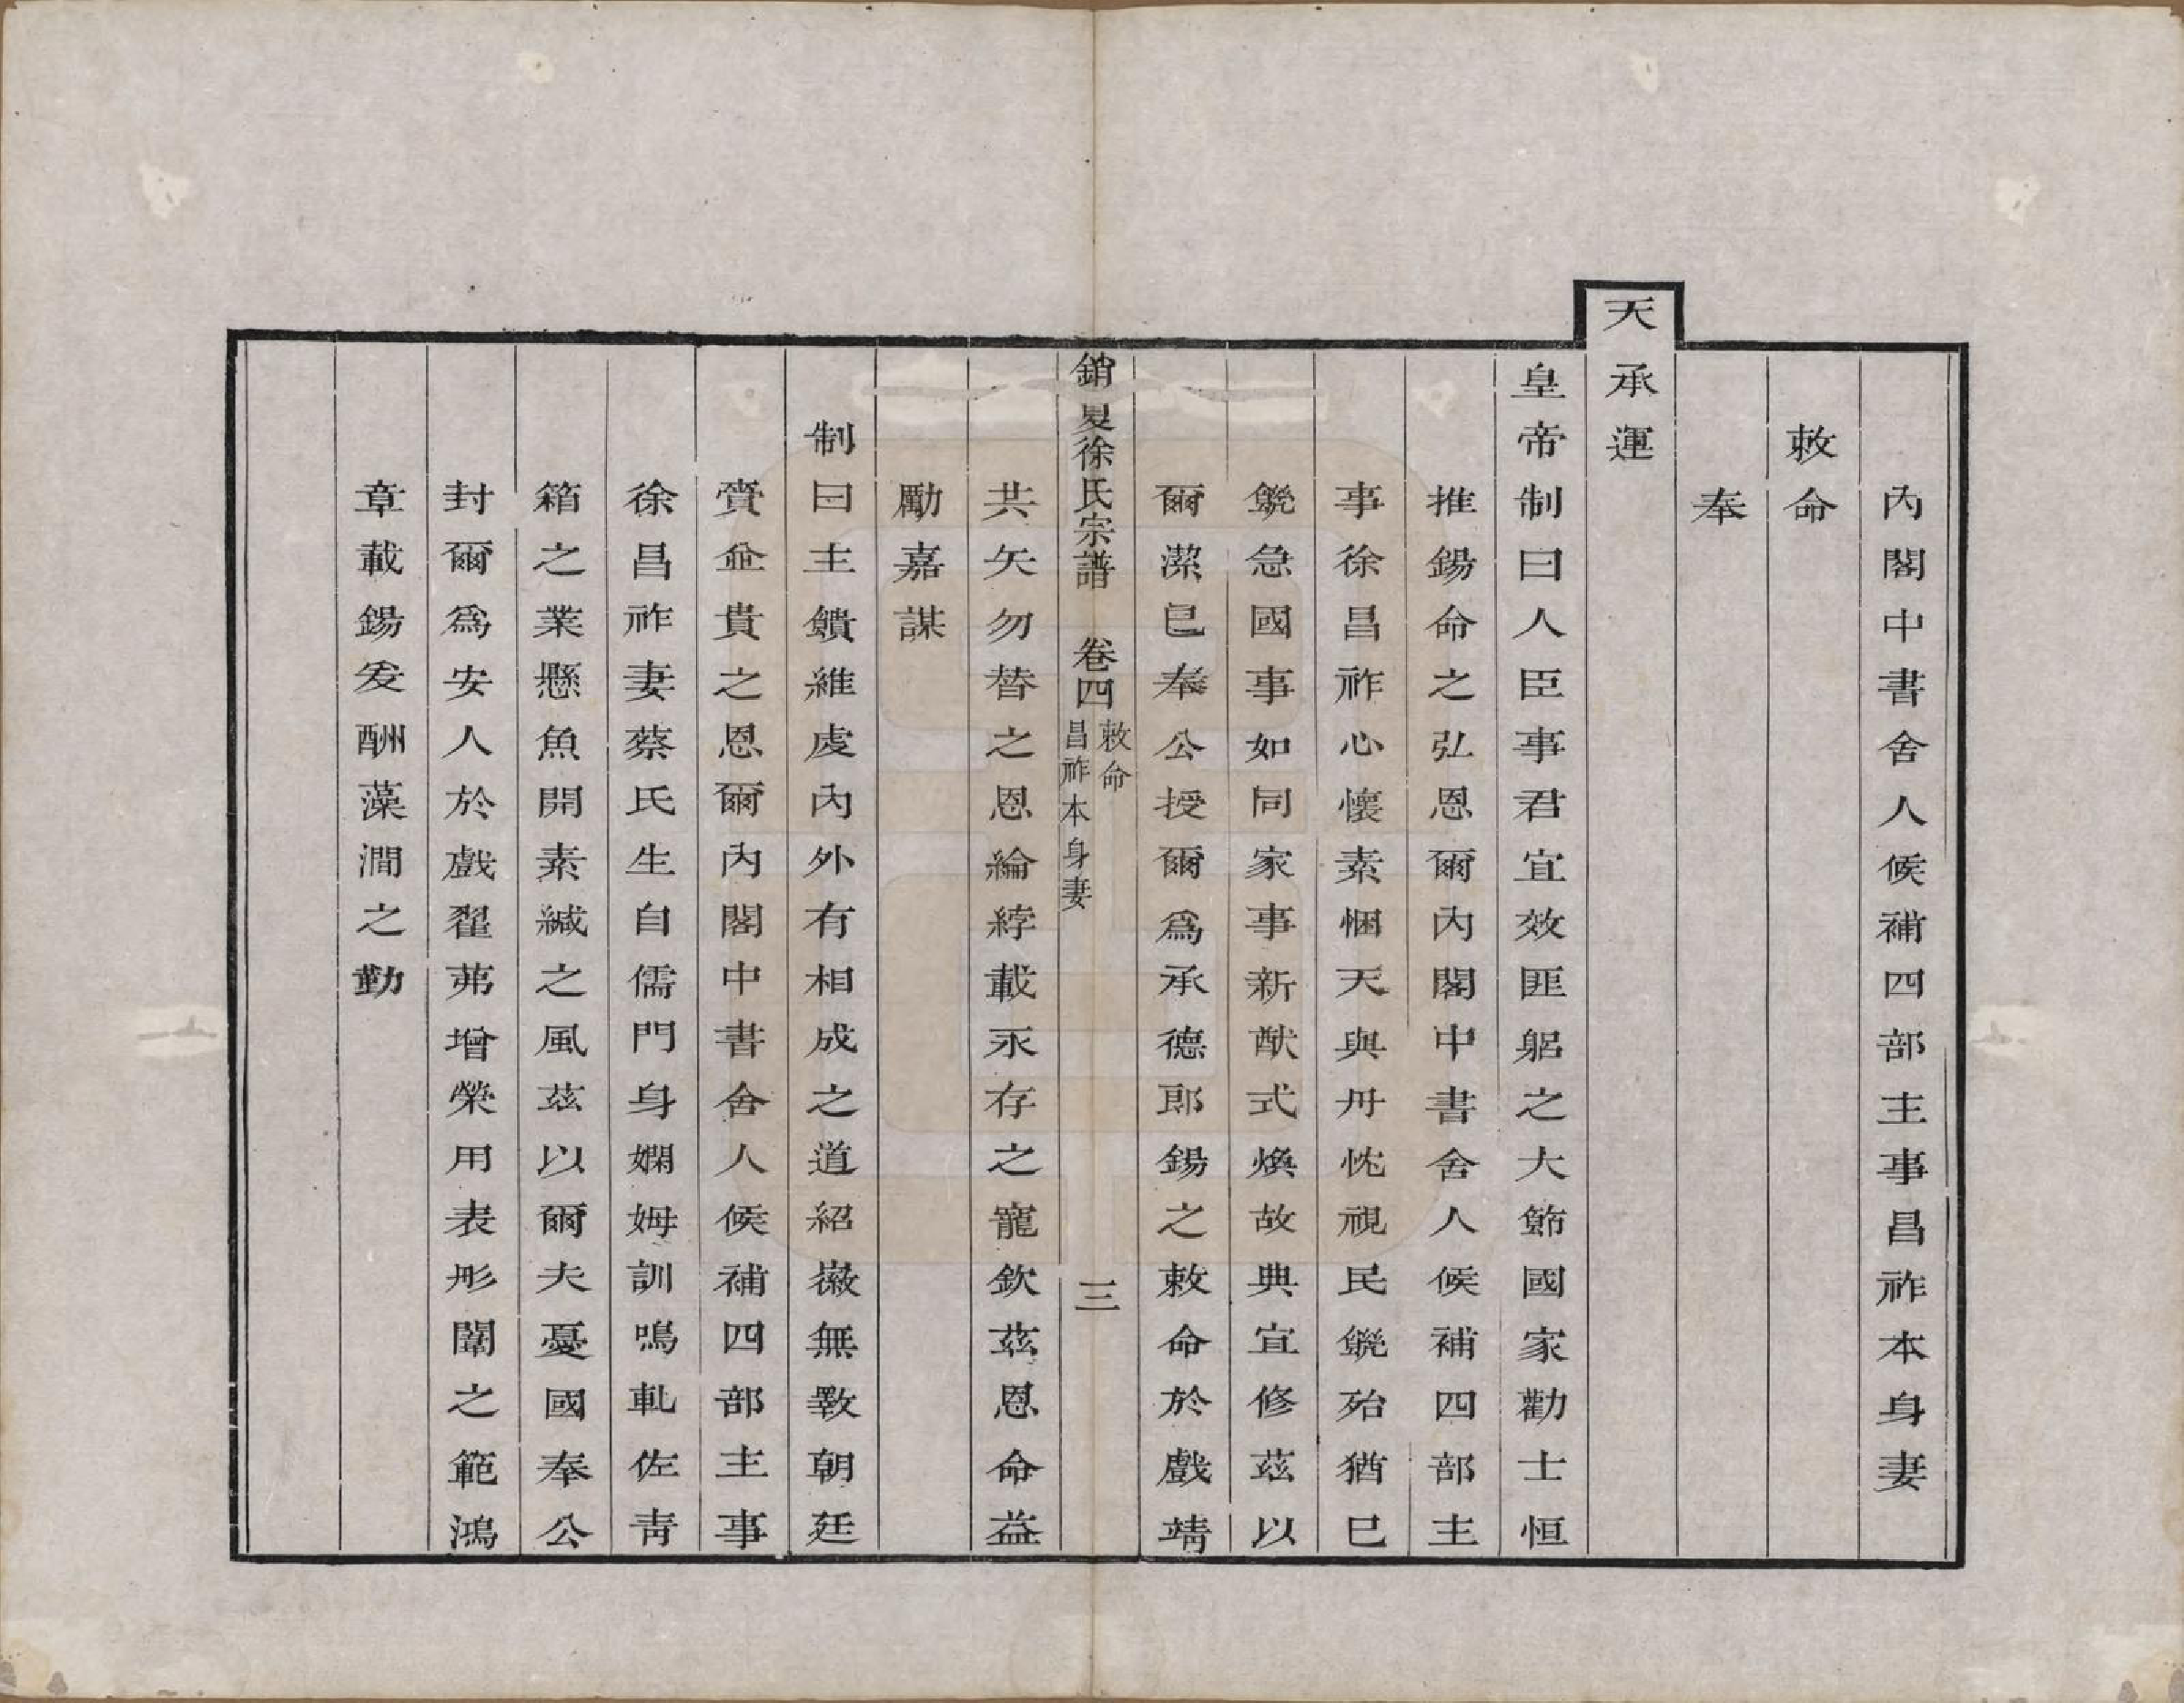 內閣中書舍人候補四部主事昌祚本身妻
敕命
奉
天承運
皇帝制曰人臣事君宜效匪躬之大節國家勸士恒
推錫命之弘恩爾內閣中書舍人候補四部主
事徐昌祚心懷素悃天與丹忱視民飢殆猶已
急國事如同家事新猷式煥故典宜修茲以
爾潔已奉公授爾為承德郎錫之敕命於戲靖
共矢勿替之恩綸綍載永存之寵欽茲恩命益
勵嘉謀
制曰主饋維虔內外有相成之道紹徽無斁朝廷
賚並貴之恩爾內閣中書舍人候補四部主事
徐昌祚妻蔡氏生自儒門身嫻姆訓鳴軋佐青
箱之業懸魚開素緘之風茲以爾夫憂國奉公
封爾為安人於戲翟茀增榮用表彤闈之範鴻
章載錫爰酬藻澗之勤
銷夏徐氏宗譜 卷四 敕命 昌祚本身妻 三